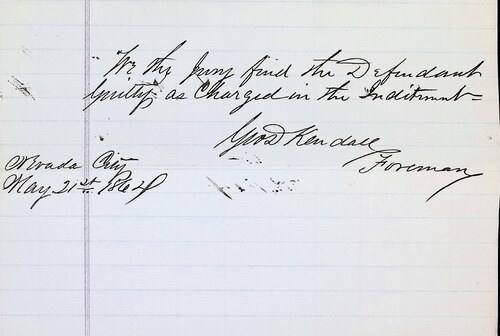 "We the Jury find the Defendant
Guilty as Charged in the Inditment =
Geo D Kendall
Foreman
Nevada City
May 21st 1864